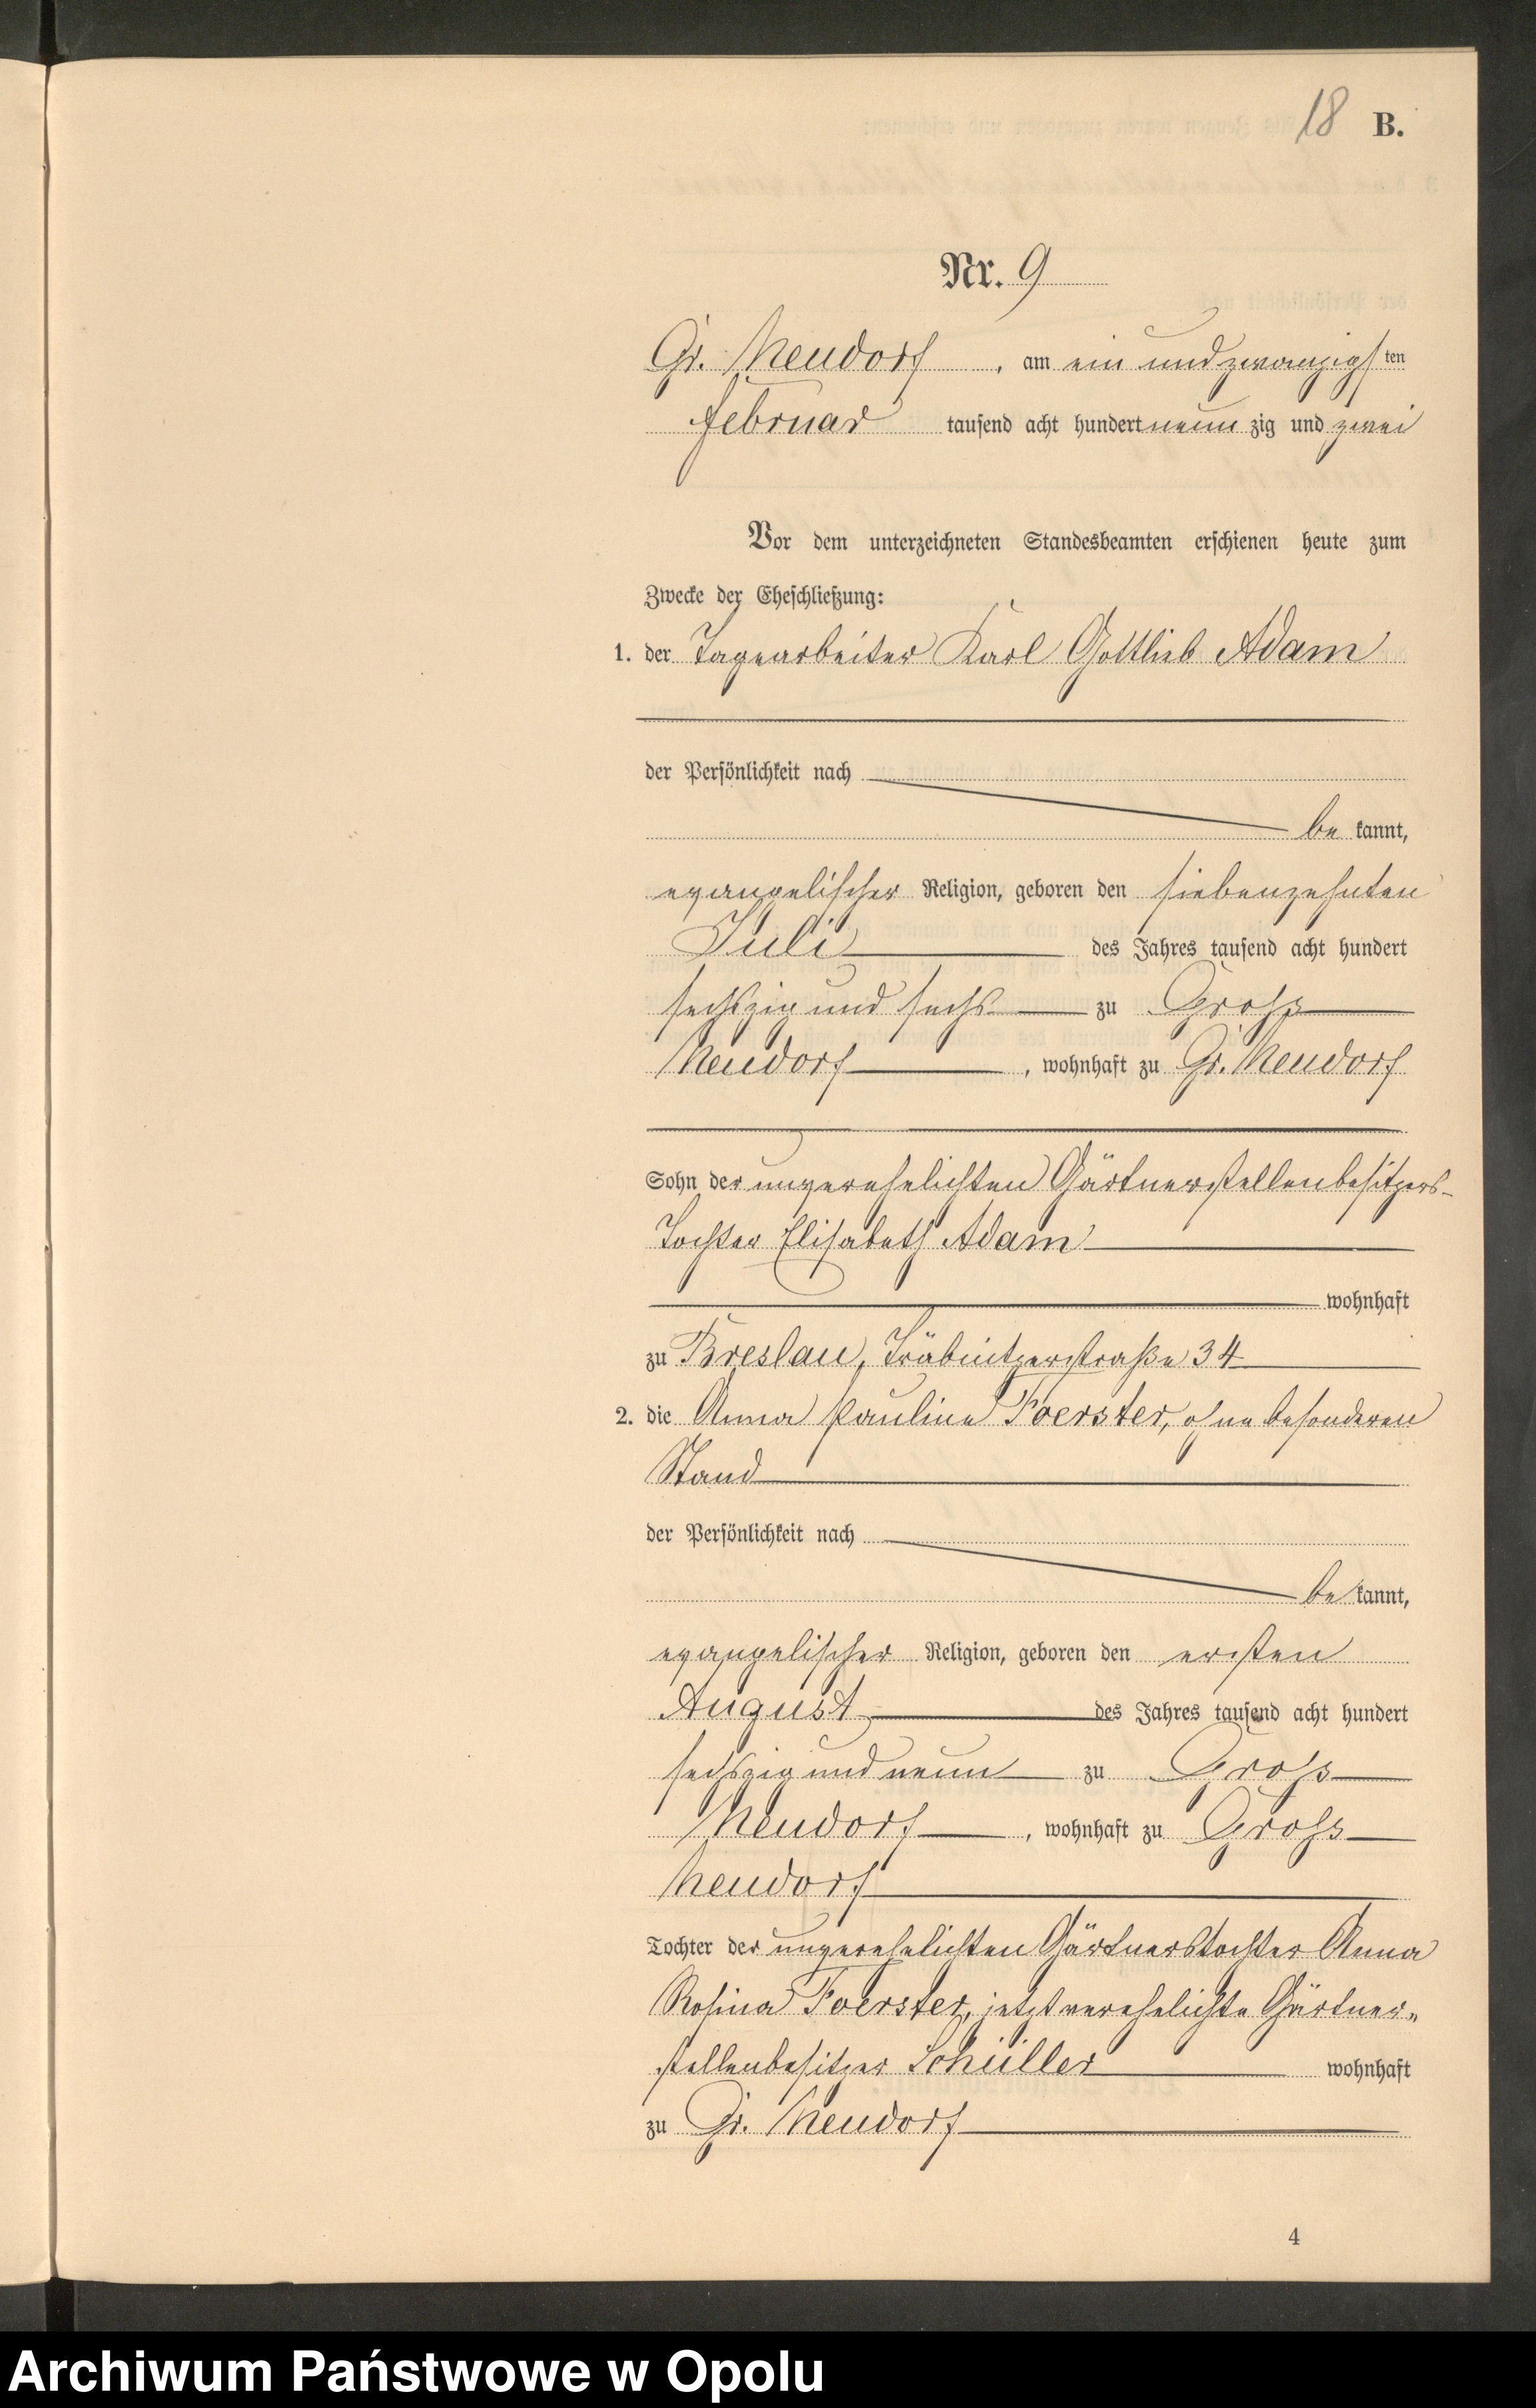 18 B.
Nr. 9
Gr. Neudorf, am ein und zwanzigsten
Februar tausend acht hundert neun zig und zwei
Vor dem unterzeichneten Standesbeamten erschienen heute zum
Zwecke der Eheschließung:
1. der Tagearbeiter Karl Gottlieb Adam
der Persönlichkeit nach
be kannt,
evangelischer Religion, geboren den siebenzehnten
Juli des Jahres tausend acht hundert
sechszig und sechs zu Gross
Neudorf, wohnhaft zu Gr. Neudorf
Sohn der unverehelichten Gärtnerstellenbesitzers-
Tochter Elisabeth Adam
wohnhaft
zu Breslau, Träbnitzerstraße 34
2. die Anna Pauline Foerster, ohne besonderen
Stand
der Persönlichkeit nach
be kannt,
evangelischer Religion, geboren den ersten
August des Jahres tausend acht hundert
sechszig und neun zu Gross
Neudorf, wohnhaft zu Gross
Neudorf
Tochter der unverehelichten Gärtnerstochter Anna
Rosina Foerster, jetzt verehelichte Gärtner-
stellenbesitzer Schüller wohnhaft
zu Gr. Neudorf
4
Archiwum Państwowe w Opolu